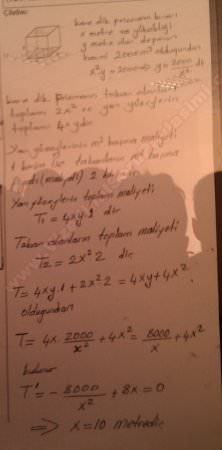 Çözüm:
kare dik prizmanın kenarı
x metre ve yüksekliği
y metre olan deponun
hacmi 2000 m³ olduğundan
x²y = 2000 => y = 2000/x² dir
kare dik prizmanın taban alanları
toplamı 2x² ve yan yüzeylerin
toplamı 4xy dir
Yan yüzeylerinin m² başına maliyeti
1 birim ise tabanların m² başına
fiyatı (maliyeti) 2 birim
Yan yüzeylerin toplam maliyeti
T₁ = 4xy.1 dir
Taban alanların toplam maliyeti
T₂ = 2x².2 dir
T = 4xy.1 + 2x².2 = 4xy + 4x²
olduğundan
T = 4x. 2000/x² + 4x² = 8000/x + 4x²
bulunur
T' = - 8000/x² + 8x = 0
=> x = 10 metredir